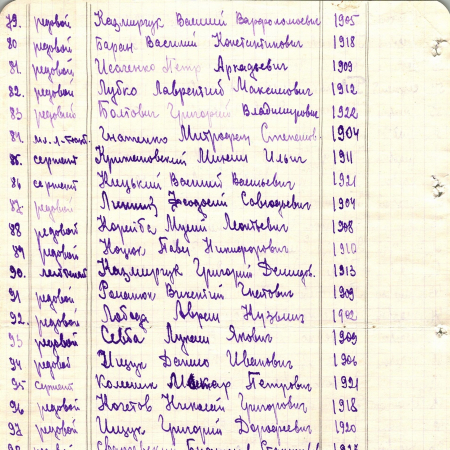 79. редовой Казмирчук Василий Варфоломеевич 1905
80 редовой Баран Василий Константинович 1918
81. редовой Исаченко Петр Аркадьевич 1909
82. редовой Лубко Лаврентий Максимович 1912
83 редовой Болтович Григорий Владимирович 1922
84. Гнатенко Митрофан Степанов. 1904
85. сержант Ильич 1911
86 сержант Ницький Василий Васильевич 1921
87. редовой Феодосий Савладеевич 1904
88 редовой Корейба Мусий Леонтьевич 1908
89 редовой Павел Никифорович 1910
90. лейтенант Казмирчук Григорий Демидв. 1913
91 редовой Романюк Викентий Гнатович 1909
92. редовой Лобода Аврам Кузьмич 1902
93 редовой Севба Лукаш Якович 1909
94 редовой Ищук Данило Иванович 1906
95 сержант Колесник Макар Петрович 1921
96 редовой Кочетов Николай Григорович 1918
97 редовой Ищук Григорий Дорофеевич 1920
98